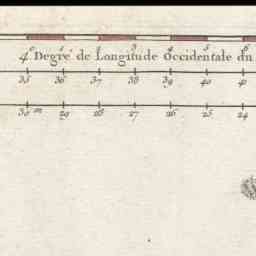 4° Degré de Longitude Occidentale du
35 36 37 38 39 40 41
30 m 29 28 27 26 25 24